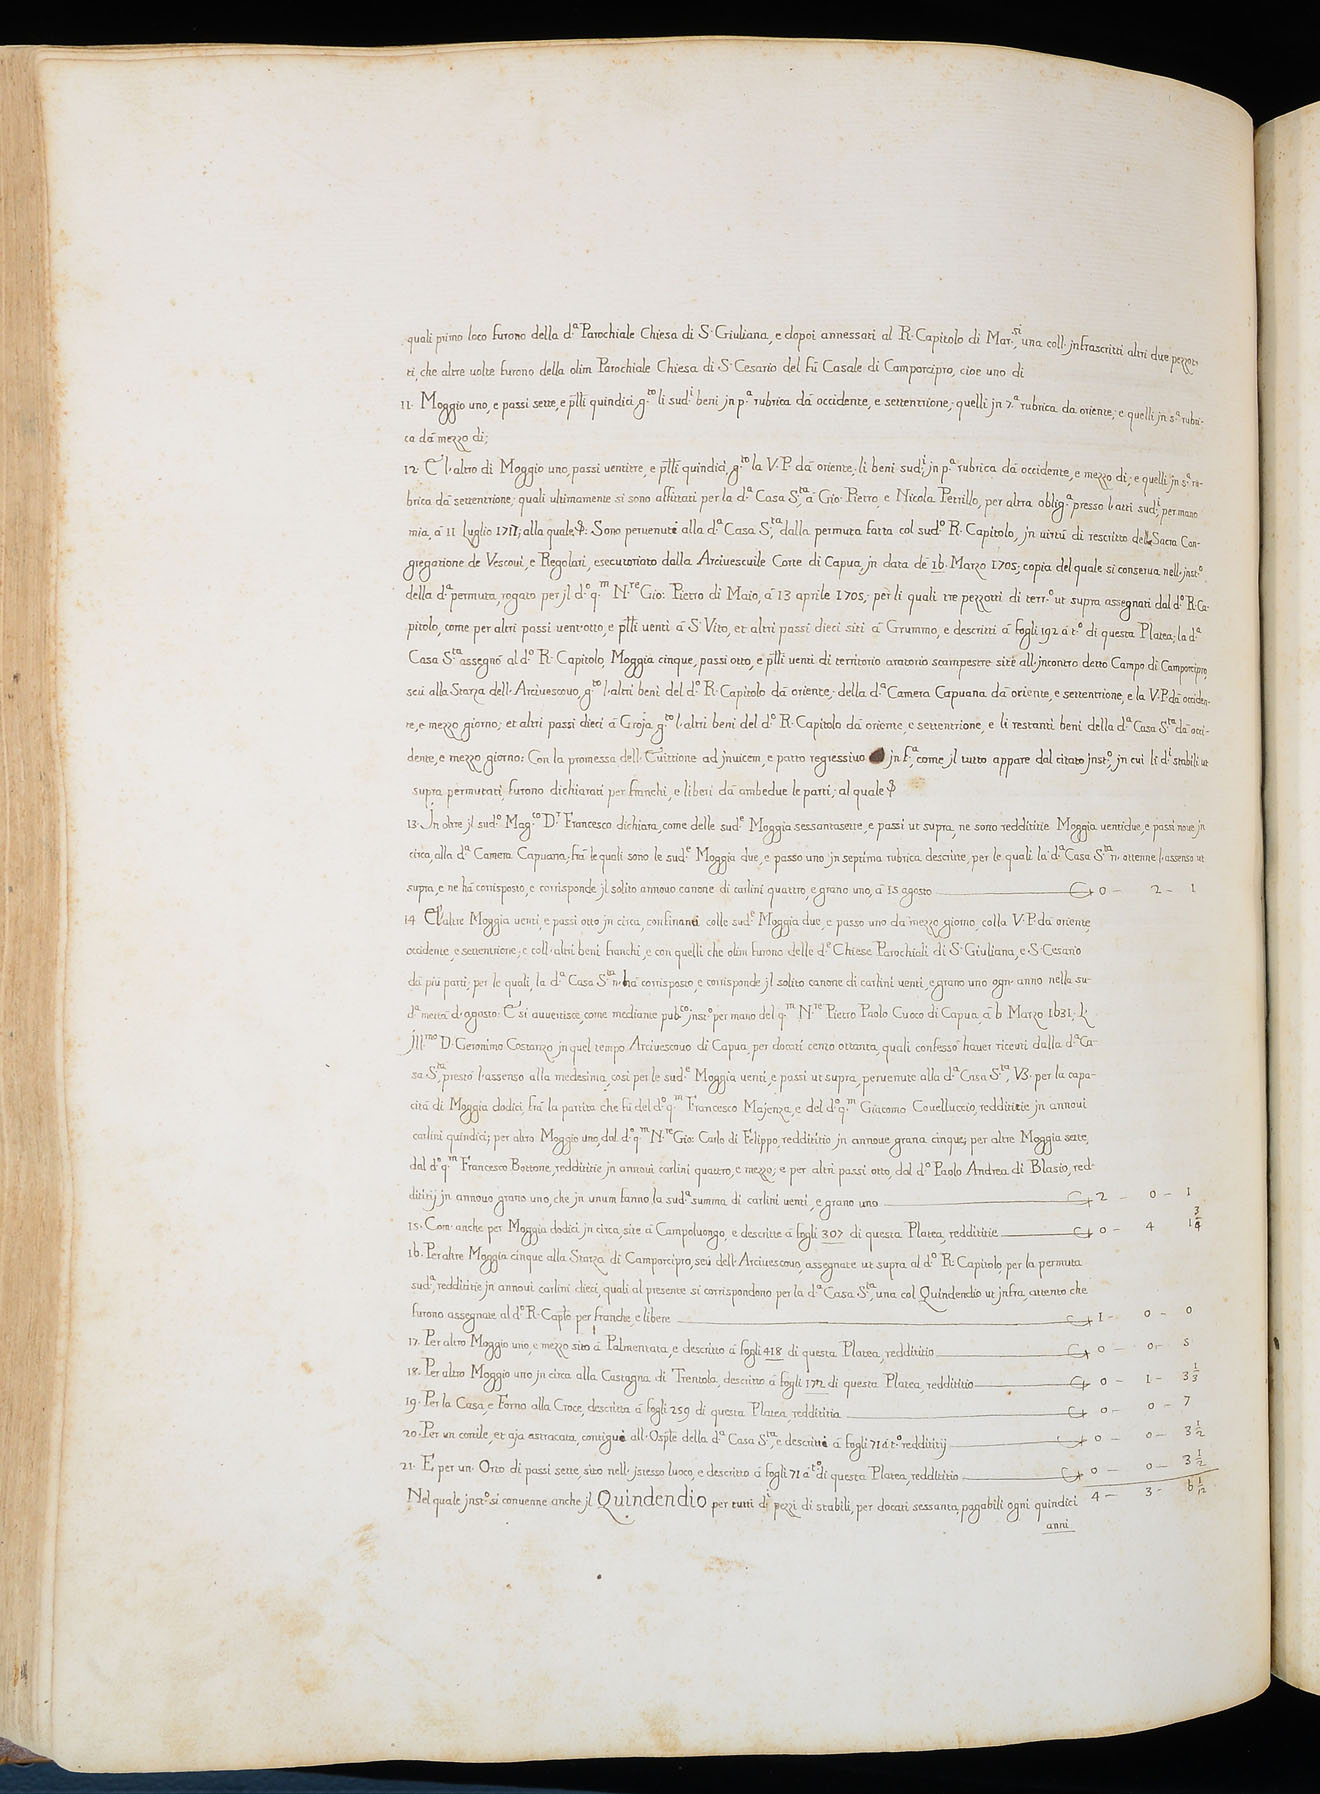 quali primo loco furono della d.ª Parochiale Chiesa di S. Giuliana, e dopoi annessati al R. Capitolo di Mar.si, una coll. jnfrascritti altri due pezzot-
ti, che altre uolte furono della olim Parochiale Chiesa di S. Cesario del fù Casale di Camporcipro, cioe uno di
11. Moggio uno, e passi sette, e p̄lli quindici, g.to li sud.i beni jn p.ª rubrica dà occidente, e settentrione; quelli jn 7.ª rubrica da oriente; e quelli jn s.ª rubri-
ca dà mezzo di;
12. E l'altro di Moggio uno, passi uentitre, e p̄lli quindici, g.to la V. P. dà oriente; li beni sud.i jn p.ª rubrica dà occidente, e mezzo di; e quelli jn s.ª ru-
brica dà settentrione; quali ultimamente si sono affittati per la d.ª Casa S.ta à Gio. Pietro, e Nicola Petrillo, per altra oblig.ª presso l'atti sud.i, per mano
mia, à 11 Luglio 1717; alla quale &: Sono peruenuti alla d.ª Casa S.ta dalla permuta fatta col sud.o R. Capitolo, jn uirtù di rescritto della Sacra Con-
gregatione de Vescoui, e Regolari, esecutoriato dalla Arciuescuile Corte di Capua, jn data de 16. Marzo 1705; copia del quale si conserua nell'jnst.o
della d.ª permuta, rogato per jl d.o q.m N.re Gio: Pietro di Maio, à 13 aprile 1705; per li quali tre pezzotti di terr.o ut supra assegnati dal d.o R. Ca-
pitolo, come per altri passi uent'otto, e p̄lli uenti à S. Vito, et altri passi dieci siti à Grummo, e descritti à fogli 192 à t.o di questa Platea; la d.ª
Casa S.ta assegnò al d.o R. Capitolo, Moggia cinque, passi otto, e p̄lli uenti di territorio aratorio scampestre site all'jncontro detto Campo di Camporcipro,
seù alla Starza dell'Arciuescouo, g.to l'altri beni del d.o R. Capitolo dà oriente; della d.ª Camera Capuana dà oriente, e settentrione, e la V. P. dà occiden-
te, e mezzo giorno; et altri passi dieci à Groja, g.to l'altri beni del d.o R. Capitolo dà oriente, e settentrione, e li restanti beni della d.ª Casa S.ta dà occi-
dente, e mezzo giorno: Con la promessa dell'Euittione ad jnuicem, e patto regressiuo jn f.ª, come jl tutto appare dal citato jnst.o, jn cui li d.i stabili ut
supra permutati, furono dichiarati per franchi, e liberi dà ambedue le parti; al quale &
13. Jn oltre jl sud.o Mag.co D.r Francesco dichiara, come delle sud.e Moggia sessantasette, e passi ut supra, ne sono reddititie Moggia uentidue, e passi noue jn
circa, alla d.ª Camera Capuana; frà le quali sono le sud.e Moggia due, e passo uno jn septima rubrica descritte, per le quali la d.ª Casa S.ta n'ottenne l'assenso ut
supra, e ne hà corrisposto, e corrisponde jl solito annouo canone di carlini quattro, e grano uno, à 15 agosto 0 - 2 - 1
14 E l'altre Moggia uenti, e passi otto jn circa, confinanti colle sud.e Moggia due, e passo uno dà mezzo giorno, colla V. P. dà oriente
occidente, e settentrione; e coll'altri beni franchi, e con quelli che olim furono delle d.e Chiese Parochiali di S. Giuliana, e S. Cesario
dà più parti; per le quali, la d.ª Casa S.ta n'hà corrisposto, e corrisponde jl solito canone di carlini uenti, e grano uno ogn'anno nella su-
d.ª metrà d'agosto: E si auuertisce, come mediante pub.co jnst.o per mano del q.m N.re Pietro Paolo Cuoco di Capua, à 6 Marzo 1631, L'
Jll.mo D. Geronimo Costanzo jn quel tempo Arciuescouo di Capua, per docati cento ottanta, quali confessò hauer riceuti dalla d.ª Ca-
sa S.ta, prestò l'assenso alla medesima, cosi per le sud.e Moggia uenti, e passi ut supra, peruenute alla d.ª Casa S.ta, VZ. per la capa-
cità di Moggia dodici, frà la partita che fù del d.o q.m Francesco Majenza, e del d.o q.m Giacomo Couelluccio, reddititie jn annoui
carlini quindici; per altro Moggio uno, dal d.o q.m N.re Gio: Carlo di Felippo, reddititio jn annoue grana cinque; per altre Moggia sette,
dal d.o q.m Francesco Bottone, reddititie jn annoui carlini quattro, e mezzo; e per altri passi otto, dal d.o Paolo Andrea di Blasio, red-
dititij jn annouo grano uno, che jn unum fanno la sud.ª summa di carlini uenti, e grano uno 2 - 0 - 1
15. Com'anche per Moggia dodici jn circa, site à Campoluongo, e descritte à fogli 307 di questa Platea, reddititie 0 - 4 1 3/4
16. Per altre Moggia cinque alla Starza di Camporcipro, seù dell'Arciuescouo, assegnate ut supra al d.o R. Capitolo, per la permuta
sud.ª, reddititie jn annoui carlini dieci, quali al presente si corrispondono per la d.ª Casa S.ta, una col Quindendio ut jnfra, attento che
furono assegnate al d.o R. Cap̄lo per franche, e libere 1 - 0 - 0
17. Per altro Moggio uno, e mezzo sito à Palmentata, e descritto à fogli 418 di questa Platea, reddititio 0 - 0 - 5
18. Per altro Moggio uno jn circa alla Castagna di Trentola, descritto à fogli 172 di questa Platea, reddititio 0 - 1 - 3 1/3
19. Per la Casa e Forno alla Croce, descritta à fogli 259 di questa Platea, reddititia 0 - 0 - 7
20. Per un cortile, et aja astracata, contigui all'Osp̄le della d.ª Casa S.ta, e descritti à fogli 71 à t.o reddititij 0 - 0 - 3 1/2
21. E per un'Orto di passi sette, sito nell'jstesso luoco, e descritto à fogli 71 à t.o di questa Platea, reddititio 0 - 0 - 3 1/2
Nel quale jnst.o si conuenne anche jl Quindendio per tutti d.i pezzi di stabili, per docati sessanta, pagabili ogni quindici 4 - 3 - 6 1/12
anni